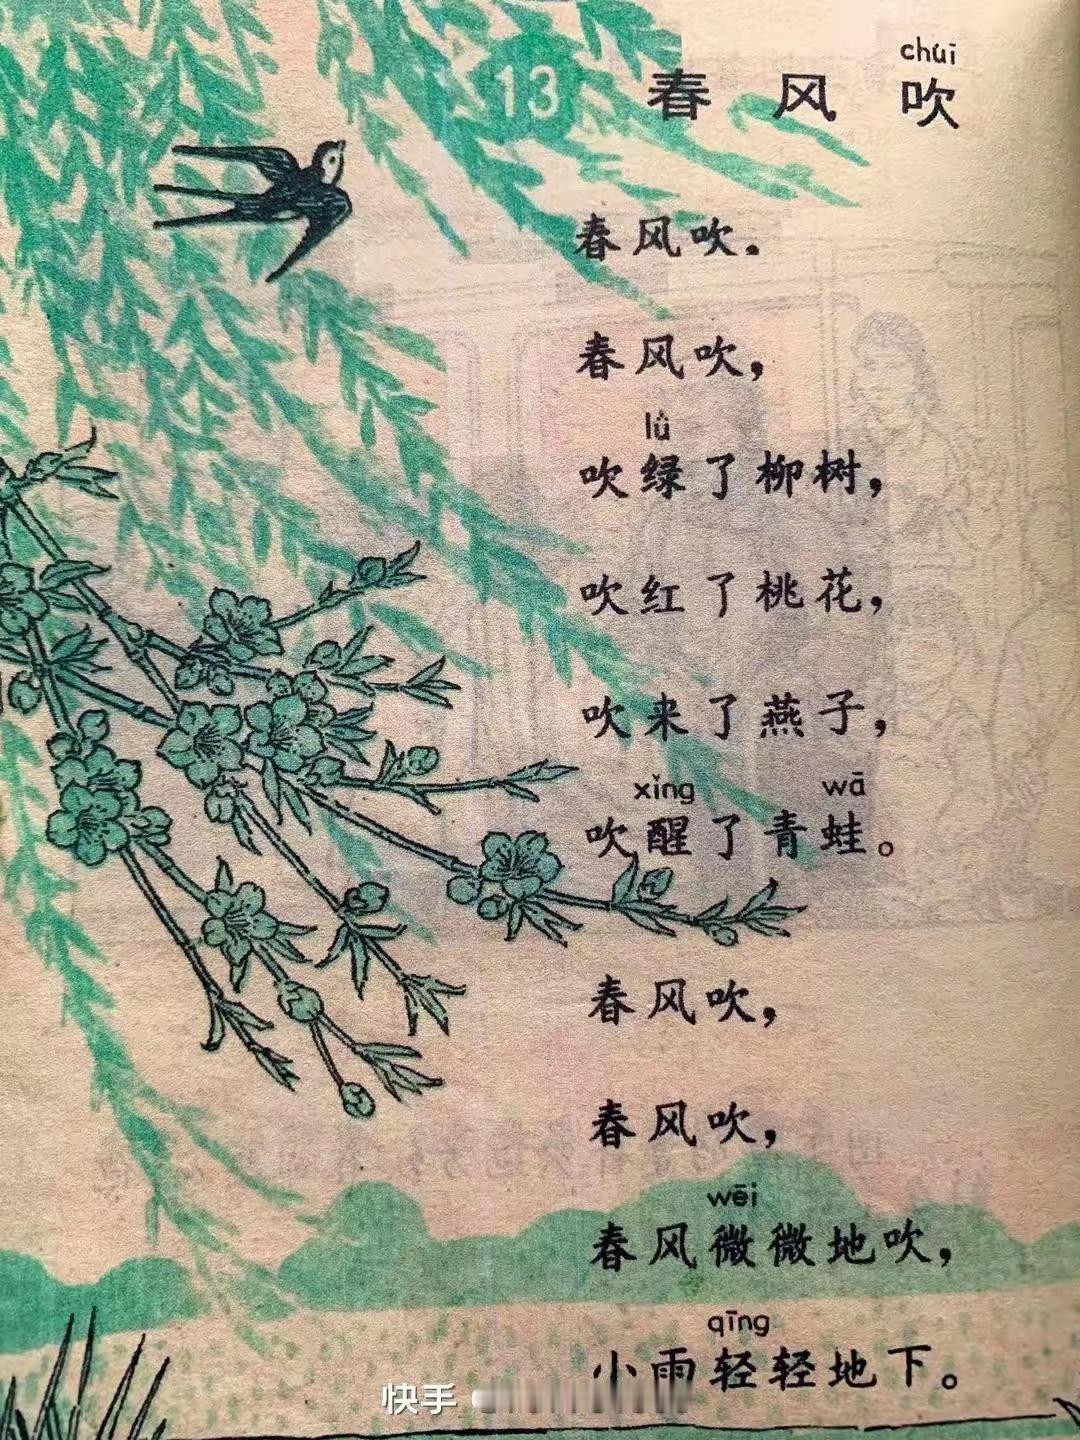 13 春风吹
chuī
春风吹。
春风吹，
lǜ
吹绿了柳树，
吹红了桃花，
吹来了燕子，
xǐng wā
吹醒了青蛙。
春风吹，
春风吹，
wēi
春风微微地吹，
qīng
小雨轻轻地下。
快手